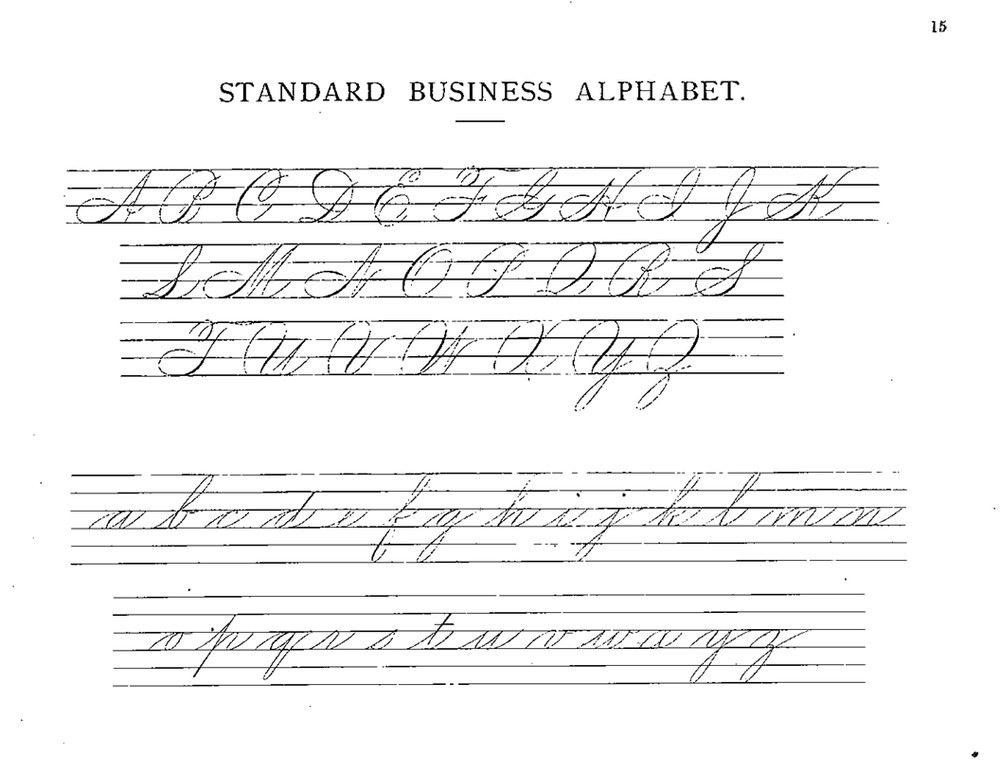 15
STANDARD BUSINESS ALPHABET.
A B C D E F G H I J K
L M N O P Q R S
T U V W X Y Z
a b c d e f g h i j k l m n
o p q r s t u v w x y z